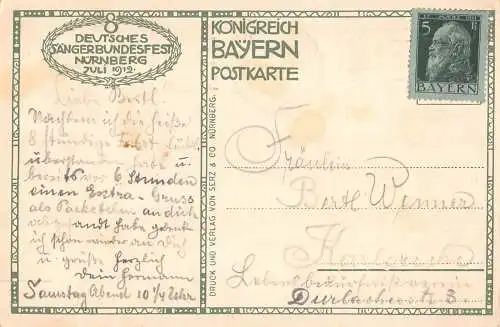 8
DEUTSCHES
SÄNGERBUNDESFEST
NÜRNBERG
JULI 1912
KÖNIGREICH
BAYERN
POSTKARTE
5 Pf
BAYERN
Liebe Bertl.
Nachdem ich die heiße
8 stündige Fahrt
überstanden habe u.
bereits vor 6 Stunden
einen Extra-Gruss
als Packetchen an dich
abgesandt habe gedenk
ich schon wieder an Dich
u grüße herzlich
Dein Hermann
Samstag Abend 10¼ Uhr
DRUCK UND VERLAG VON SERZ & CO. NÜRNBERG.
Fräulein
Bertl Wenner
Karlsruhe
Durlacher